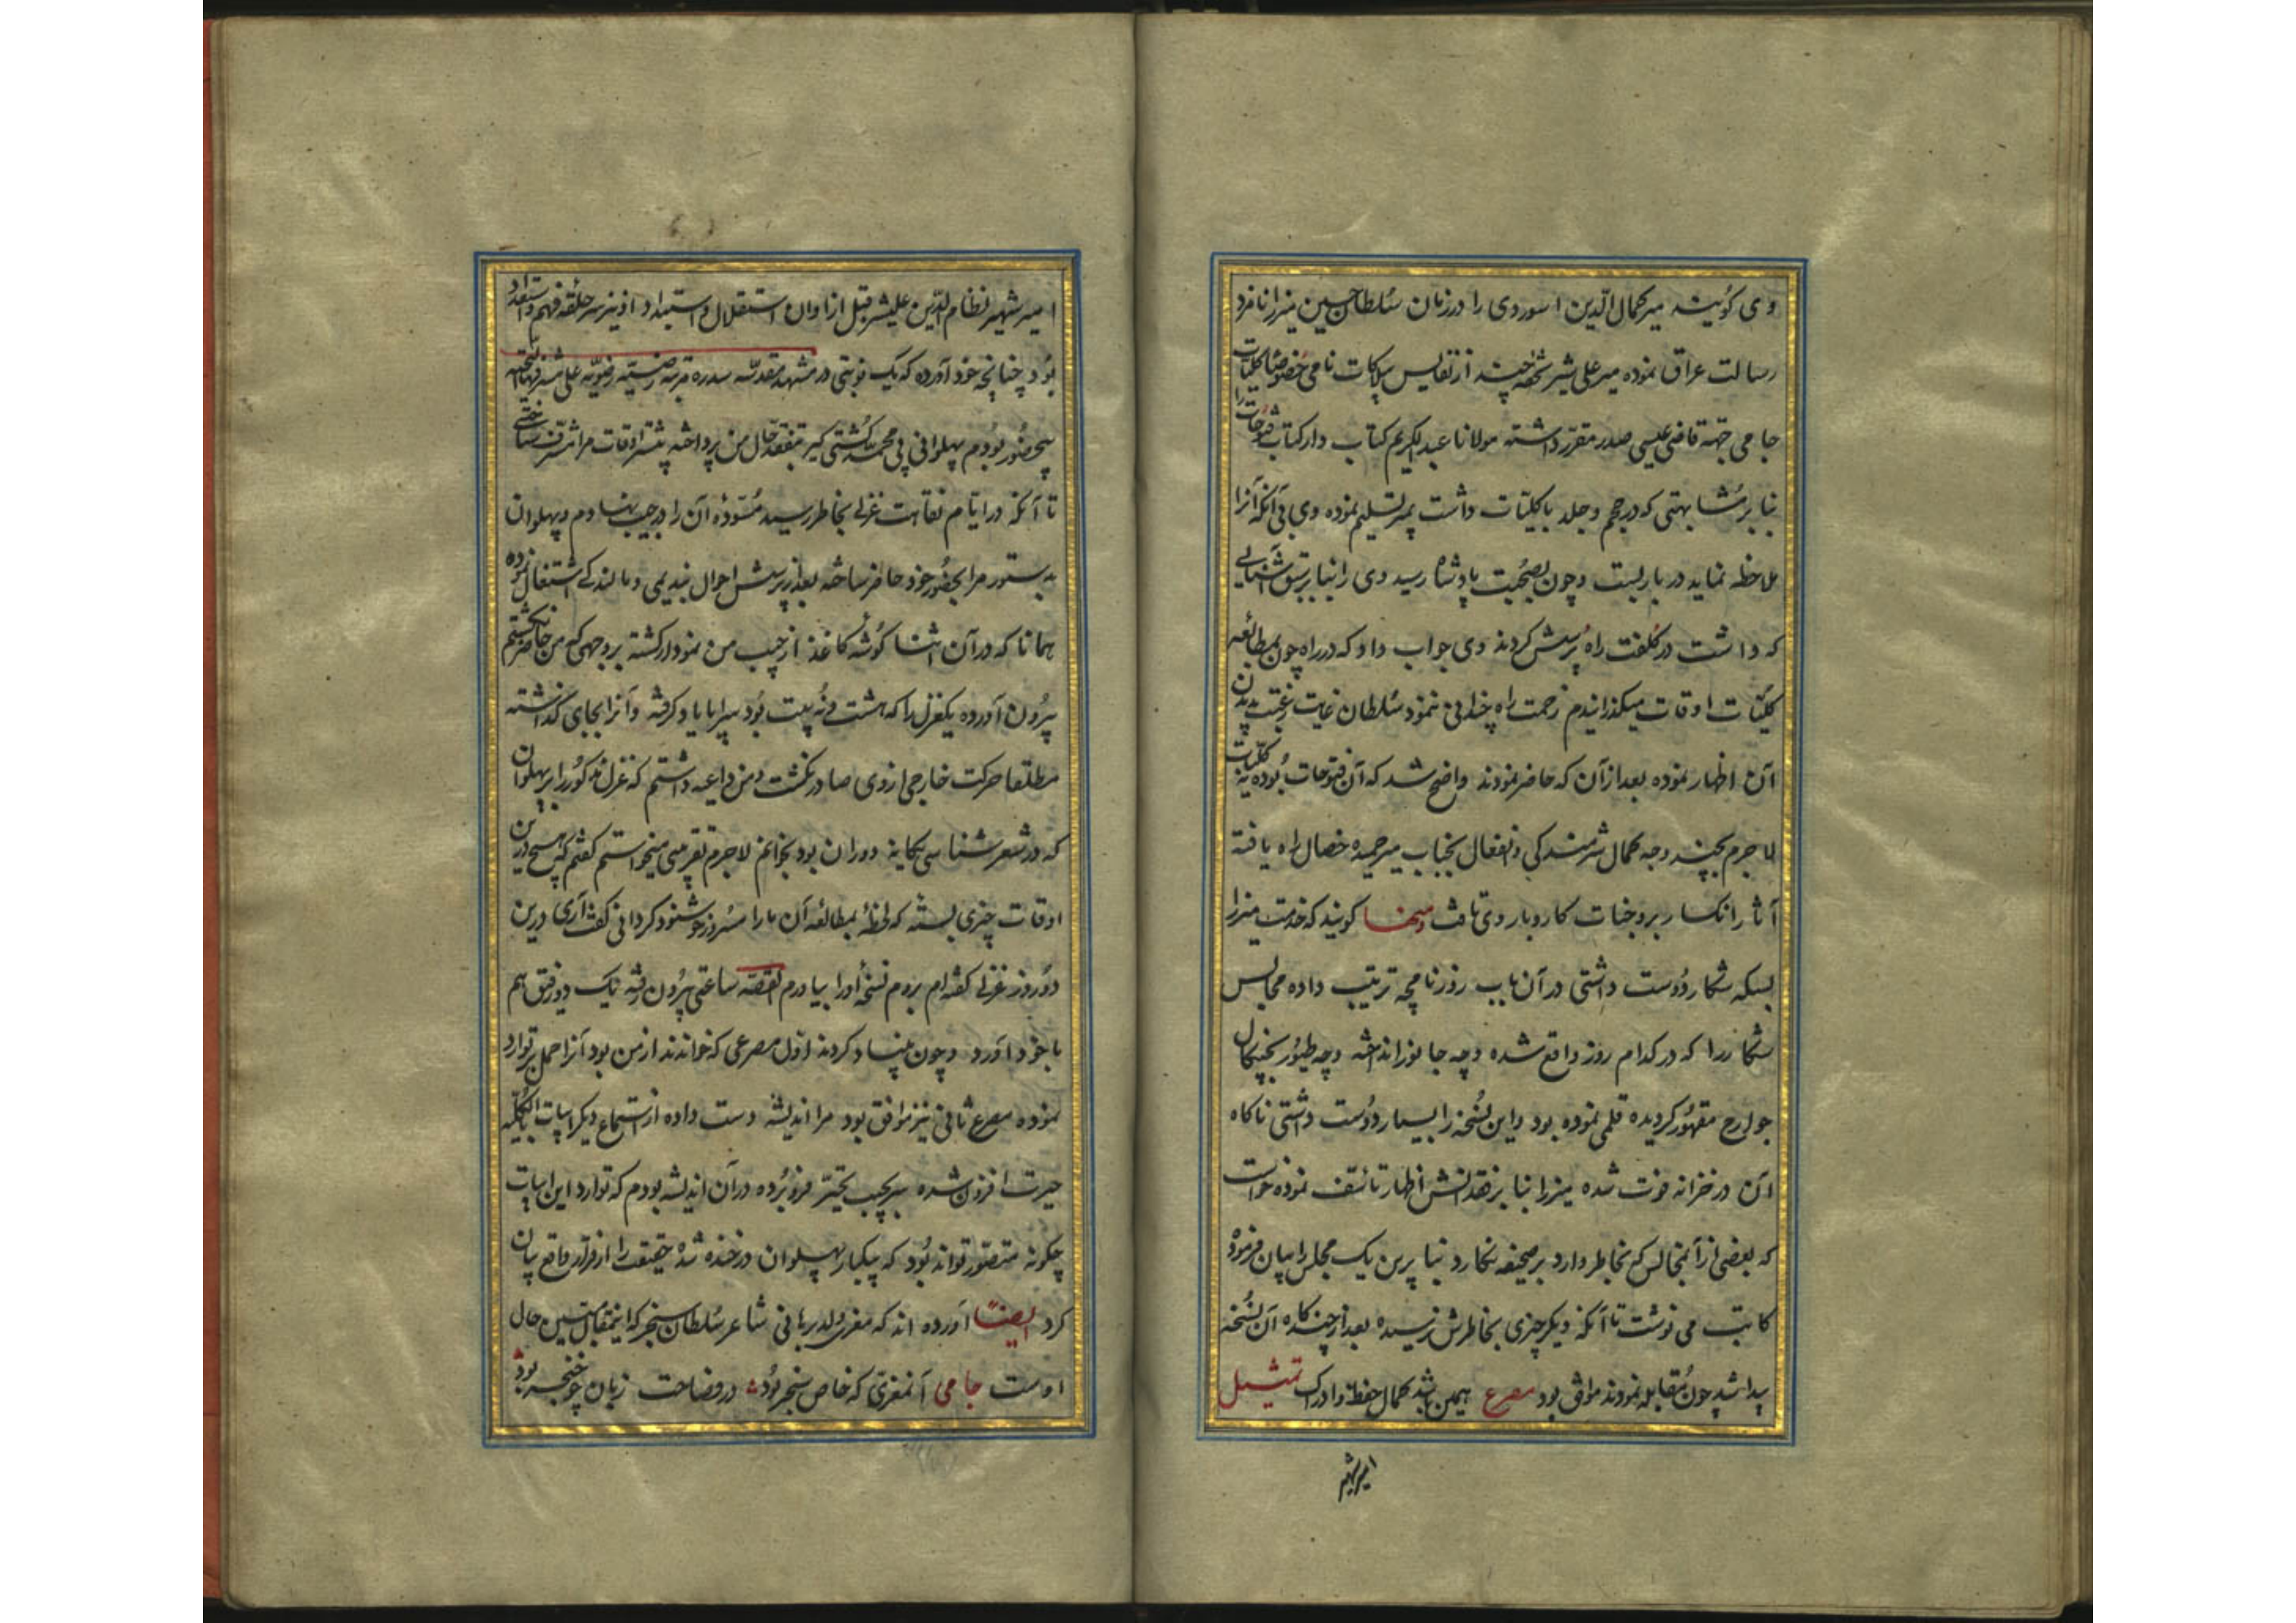 وی گویند میر کمال الدین اسوردی را در زمان سلطان حسین میرزا نامزد
رسالت عراق نموده میر علی شیر تحفه چند از نفایس بلاکات نامی خصوصا کلیات
جامی جهة قاضی عیسی صدر مقرر داشته مولانا عبد الکریم کتاب دار کتاب فتوحات را
بنا بر مشابهتی که در حجم و جلد با کلیات داشت بمیر تسلیم نموده وی بی آنکه آنرا
ملاحظه نماید در بار بست و چون بصحبت پادشاه رسید وی را بنا بر سبق آشنایی
که داشت در کلفت راه پرسش کردند وی جواب داد که در راه چون بمطالعه
کلیات اوقات میگذراندیم زحمت راه چندانی ننمود سلطان غایت رغبت بدیدن
آن اظهار نموده بعد از آن که حاضر نمودند واضح شد که آن فتوحات بوده نه کلیات
لاجرم بچند وجه کمال شرمندگی و انفعال بجناب میر حمیده خصال راه یافته
آثار انکسار بر وجنات کار و بار وی تافت ومنها گویند که خدمت میرزا
بسکه شکار دوست داشتی در آن باب روزنامچه ترتیب داده مجالس
شکار را که در کدام روز واقع شده و چه جانور انداخته و چه طیور بچنگال
جوارح مقهور گردیده قلمی نموده بود و این نسخه را بسیار دوست داشتی ناگاه
آن در خزانه فوت شده میرزا بنا بر فقدانش اظهار تأسف نموده خواست
که بعضی از آنمجالس که بخاطر دارد بر صحیفه نگارد بنا برین یک مجلس را بیان فرموده
کاتب می نوشت تا آنکه دیگر چیزی بخاطرش نرسیده بعد از چندگاه آن نسخه
پیدا شد چون مقابله نمودند موافق بود مصرع همین باشد کمال حفظ و ادراک تمثیل
امیر شهیر
امیر شهیر نظام الدین علیشیر قبل از اوان استقلال و استبداد او نیز سر حلقه فهم و استعداد
بود چنانچه خود آورده که یک نوبتی در مشهد مقدسه سدره مرتبه رضیه رضویه علی مشرفها التحیه
بیحضور بودم پهلوانی پی محمد کشتی گیر بتفقد حال من پرداخته بیشتر اوقات مرا مشرف ساختی
تا آنکه در ایام نقاهت غزلی بخاطر رسید مسوده آن را در جیب نهادم و پهلوان
بدستور مرا بحضور خود حاضر ساخته بعد از پرسش احوال بندیمی و مالندگی اشتغال نموده
همانا که در آن اثنا گوشه کاغذ از جیب من نمودار گشته بر وجهی که من حاضر نگشتم
بیرون آورده یکغزل را که هشت و نه بیت بود سراپا یاد گرفته و آنرا بجای گذاشته
مطلقا حرکت خارجی از وی صادر نگشت و من داعیه داشتم که غزل مذکور را بر پهلوان
که در شعر شناسی یگانه دوران بود بخوانم لاجرم تقریبی میخواستم گفتم که هیچ درین
اوقات چیزی بسته که لحظه بمطالعه آن ما را مسرور و خوشنود گردانی گفت آری درین
دو روز غزلی گفته ام بروم نسخه او را بیاورم القصه ساعتی بیرون رفته یک دو رفیق هم
با خود آورد و چون بنیاد کردند اول مصرعی که خواندند از من بود آنرا حمل بر توارد
نموده مصرع ثانی نیز موافق بود مرا اندیشه دست داده از استماع دیگر ابیات بالکلیه
حیرت افزون شده سر بجیب تحیر فرو برده در آن اندیشه بودم که توارد این ابیات
چگونه متصور تواند بود که بیکبار پهلوان در خنده شده حقیقت را از قرار واقع بیان
کرد ایضا آورده اند که معزی ولد برهانی شاعر سلطان سنجر که اینمقال مبین حال
اوست جامی آنمعزی که خاص سنجر بود در فصاحت زبان چو خنجر بود